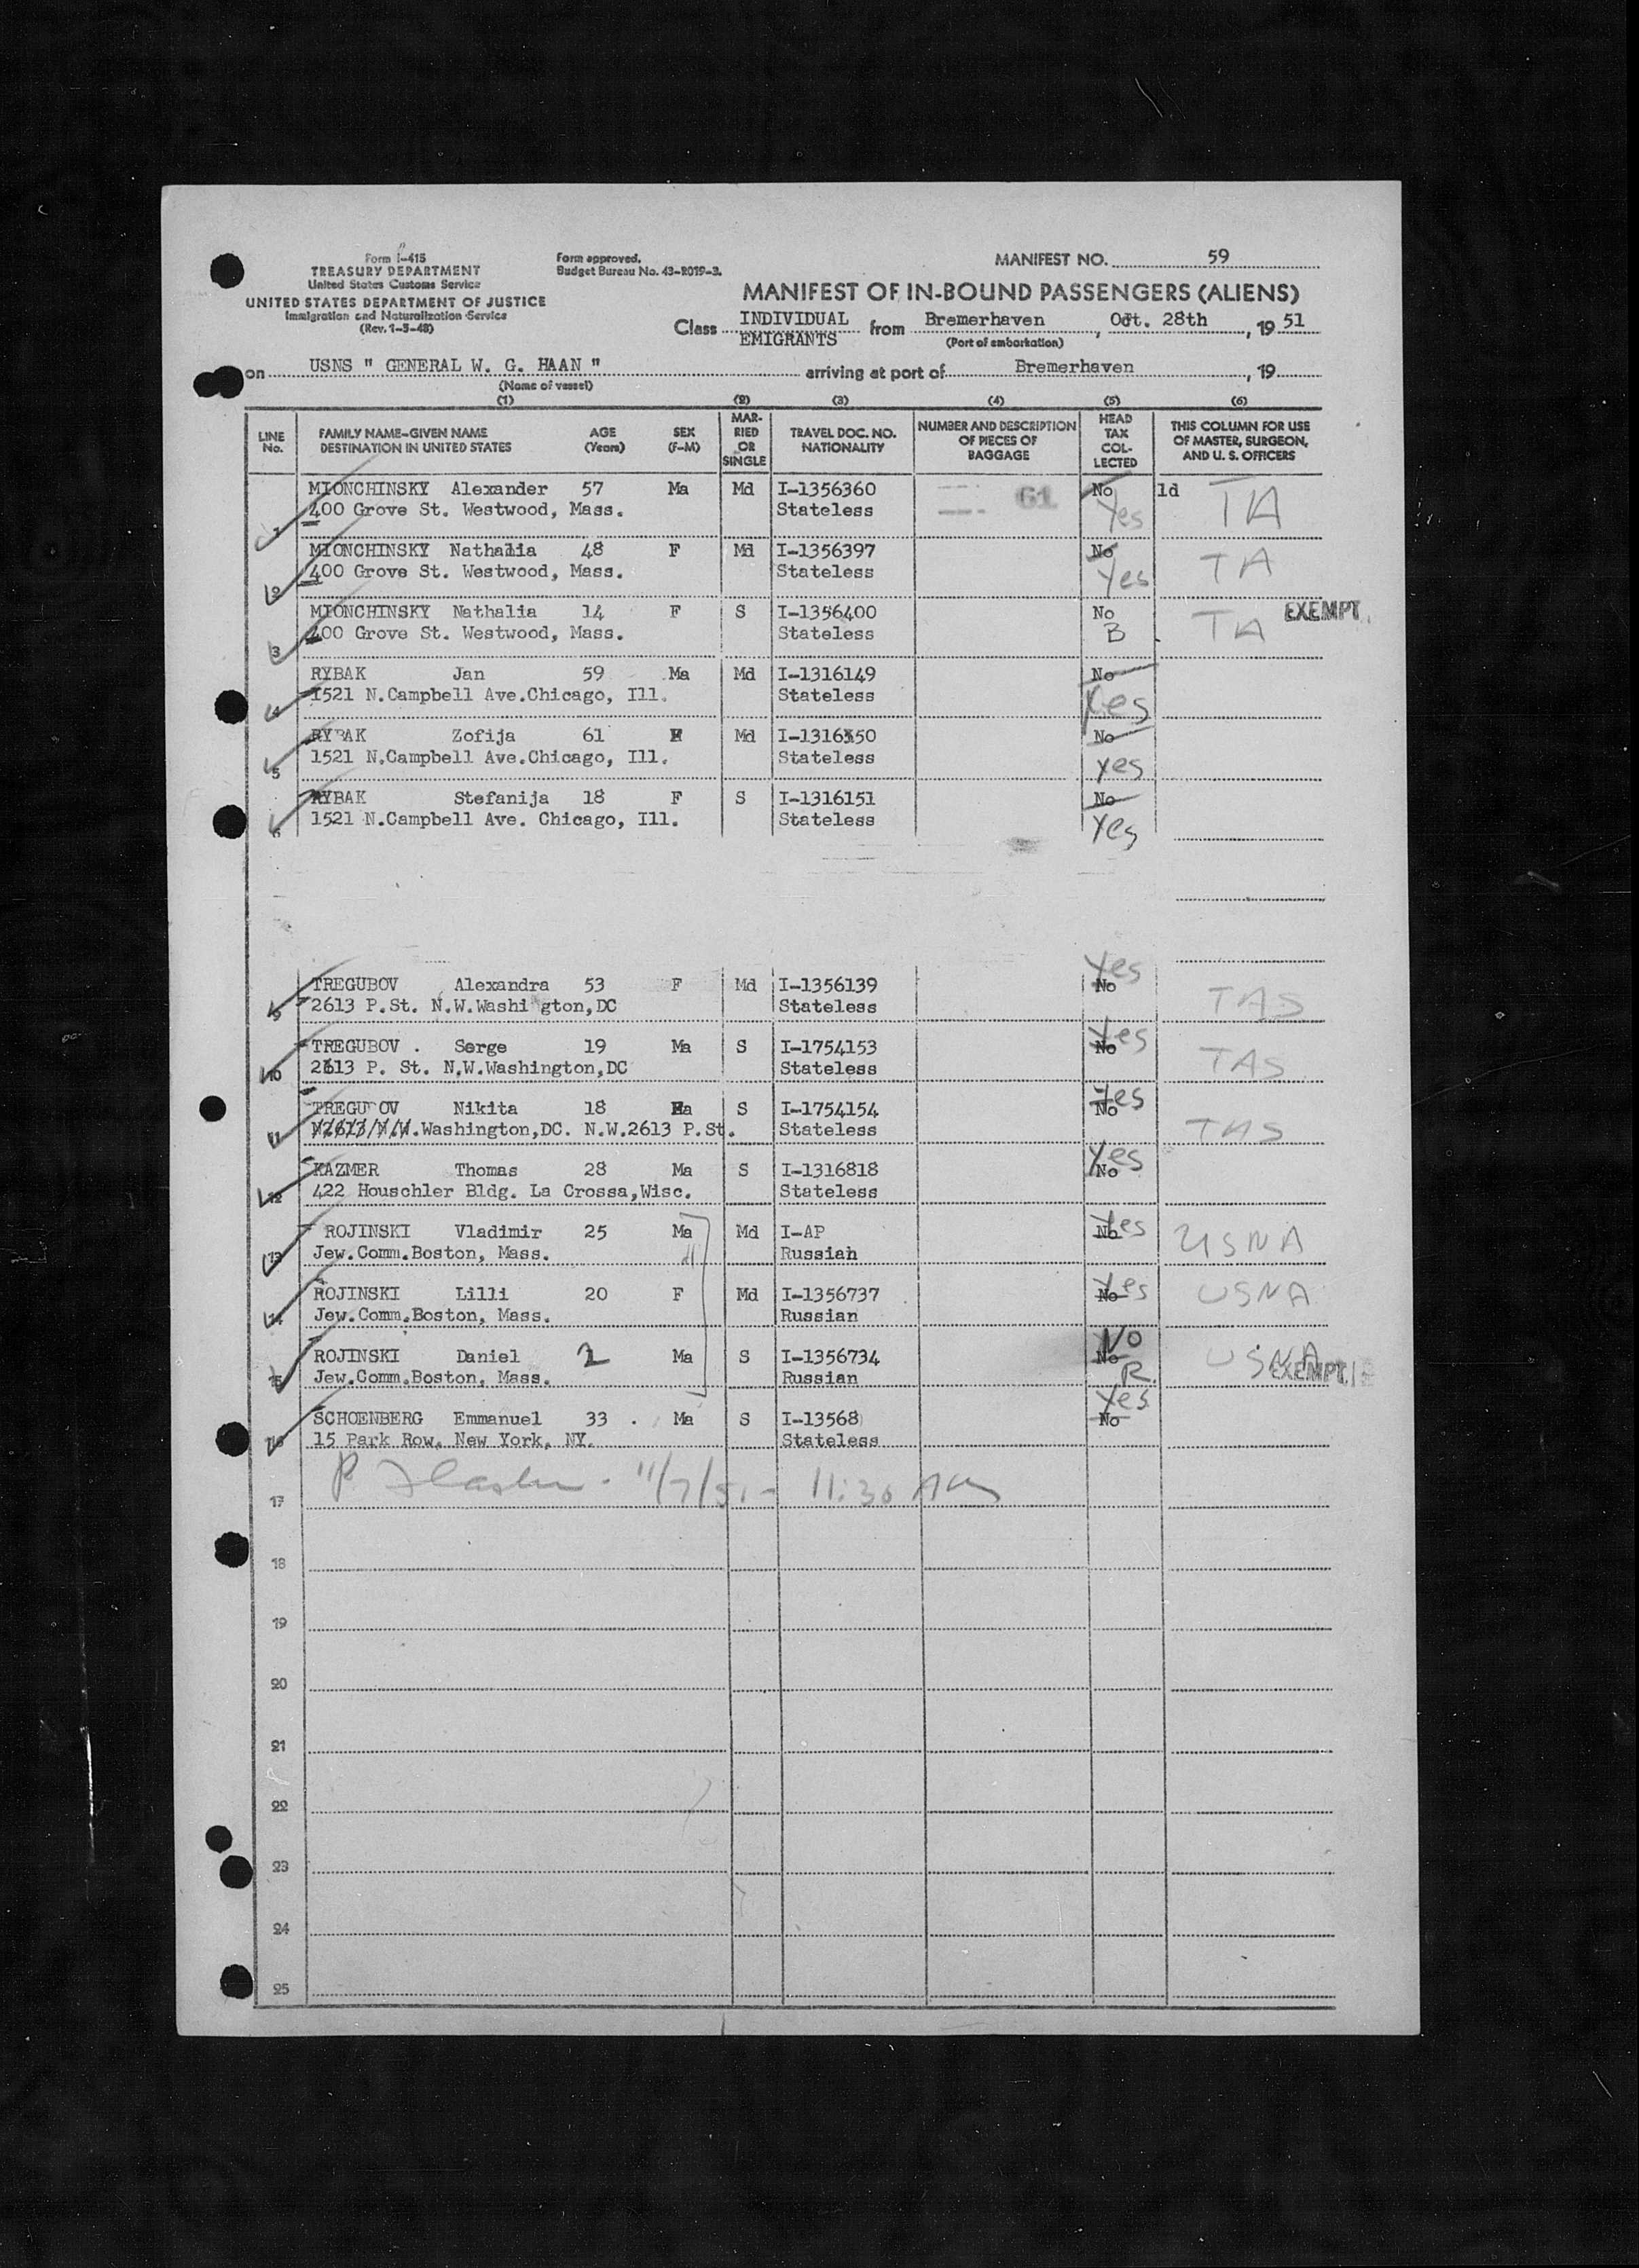 Form I-415
TREASURY DEPARTMENT
United States Customs Service
UNITED STATES DEPARTMENT OF JUSTICE
Immigration and Naturalization Service
(Rev. 1-5-48)
Form approved.
Budget Bureau No. 43-R019-3.
MANIFEST NO. 59
MANIFEST OF IN-BOUND PASSENGERS (ALIENS)
Class INDIVIDUAL EMIGRANTS from Bremerhaven, Oct. 28th, 19 51
(Port of embarkation)
on USNS " GENERAL W. G. HAAN " arriving at port of Bremerhaven, 19
(Name of vessel)
(1) (2) (3) (4) (5) (6)
LINE No. FAMILY NAME-GIVEN NAME DESTINATION IN UNITED STATES AGE (Years) SEX (F-M) MARRIED OR SINGLE TRAVEL DOC. NO. NATIONALITY NUMBER AND DESCRIPTION OF PIECES OF BAGGAGE HEAD TAX COLLECTED THIS COLUMN FOR USE OF MASTER, SURGEON, AND U. S. OFFICERS
MIONCHINSKY Alexander 57 Ma Md I-1356360 61 No 1d TA
400 Grove St. Westwood, Mass. Stateless Yes
2 MIONCHINSKY Nathalia 48 F Md I-1356397 No TA
400 Grove St. Westwood, Mass. Stateless Yes
3 MIONCHINSKY Nathalia 14 F S I-1356400 No TA EXEMPT.
400 Grove St. Westwood, Mass. Stateless B
4 RYBAK Jan 59 Ma Md I-1316149 No
1521 N.Campbell Ave.Chicago, Ill. Stateless Yes
5 RYBAK Zofija 61 F Md I-1316150 No
1521 N.Campbell Ave.Chicago, Ill. Stateless Yes
6 RYBAK Stefanija 18 F S I-1316151 No
1521 N.Campbell Ave. Chicago, Ill. Stateless Yes
Yes
9 TREGUBOV Alexandra 53 F Md I-1356139 No TAS
2613 P.St. N.W.Washi gton,DC Stateless
Yes
10 TREGUBOV . Serge 19 Ma S I-1754153 No TAS
2613 P. St. N.W.Washington,DC Stateless
Yes
11 TREGU OV Nikita 18 Ma S I-1754154 No TAS
.Washington,DC. N.W.2613 P.St. Stateless
Yes
12 KAZMER Thomas 28 Ma S I-1316818 No
422 Houschler Bldg. La Crossa,Wisc. Stateless
13 ROJINSKI Vladimir 25 Ma Md I-AP No Yes USNA
Jew.Comm.Boston, Mass. Russian
14 ROJINSKI Lilli 20 F Md I-1356737 No Yes USNA
Jew.Comm.Boston, Mass. Russian
No
15 ROJINSKI Daniel 2 Ma S I-1356734 No USNA
Jew.Comm.Boston, Mass. Russian R. EXEMPT.
Yes
16 SCHOENBERG Emmanuel 33 . Ma S I-13568 No
15 Park Row, New York, NY. Stateless
11/7/51 - 11:30 AM
17
18
19
20
21
22
23
24
25